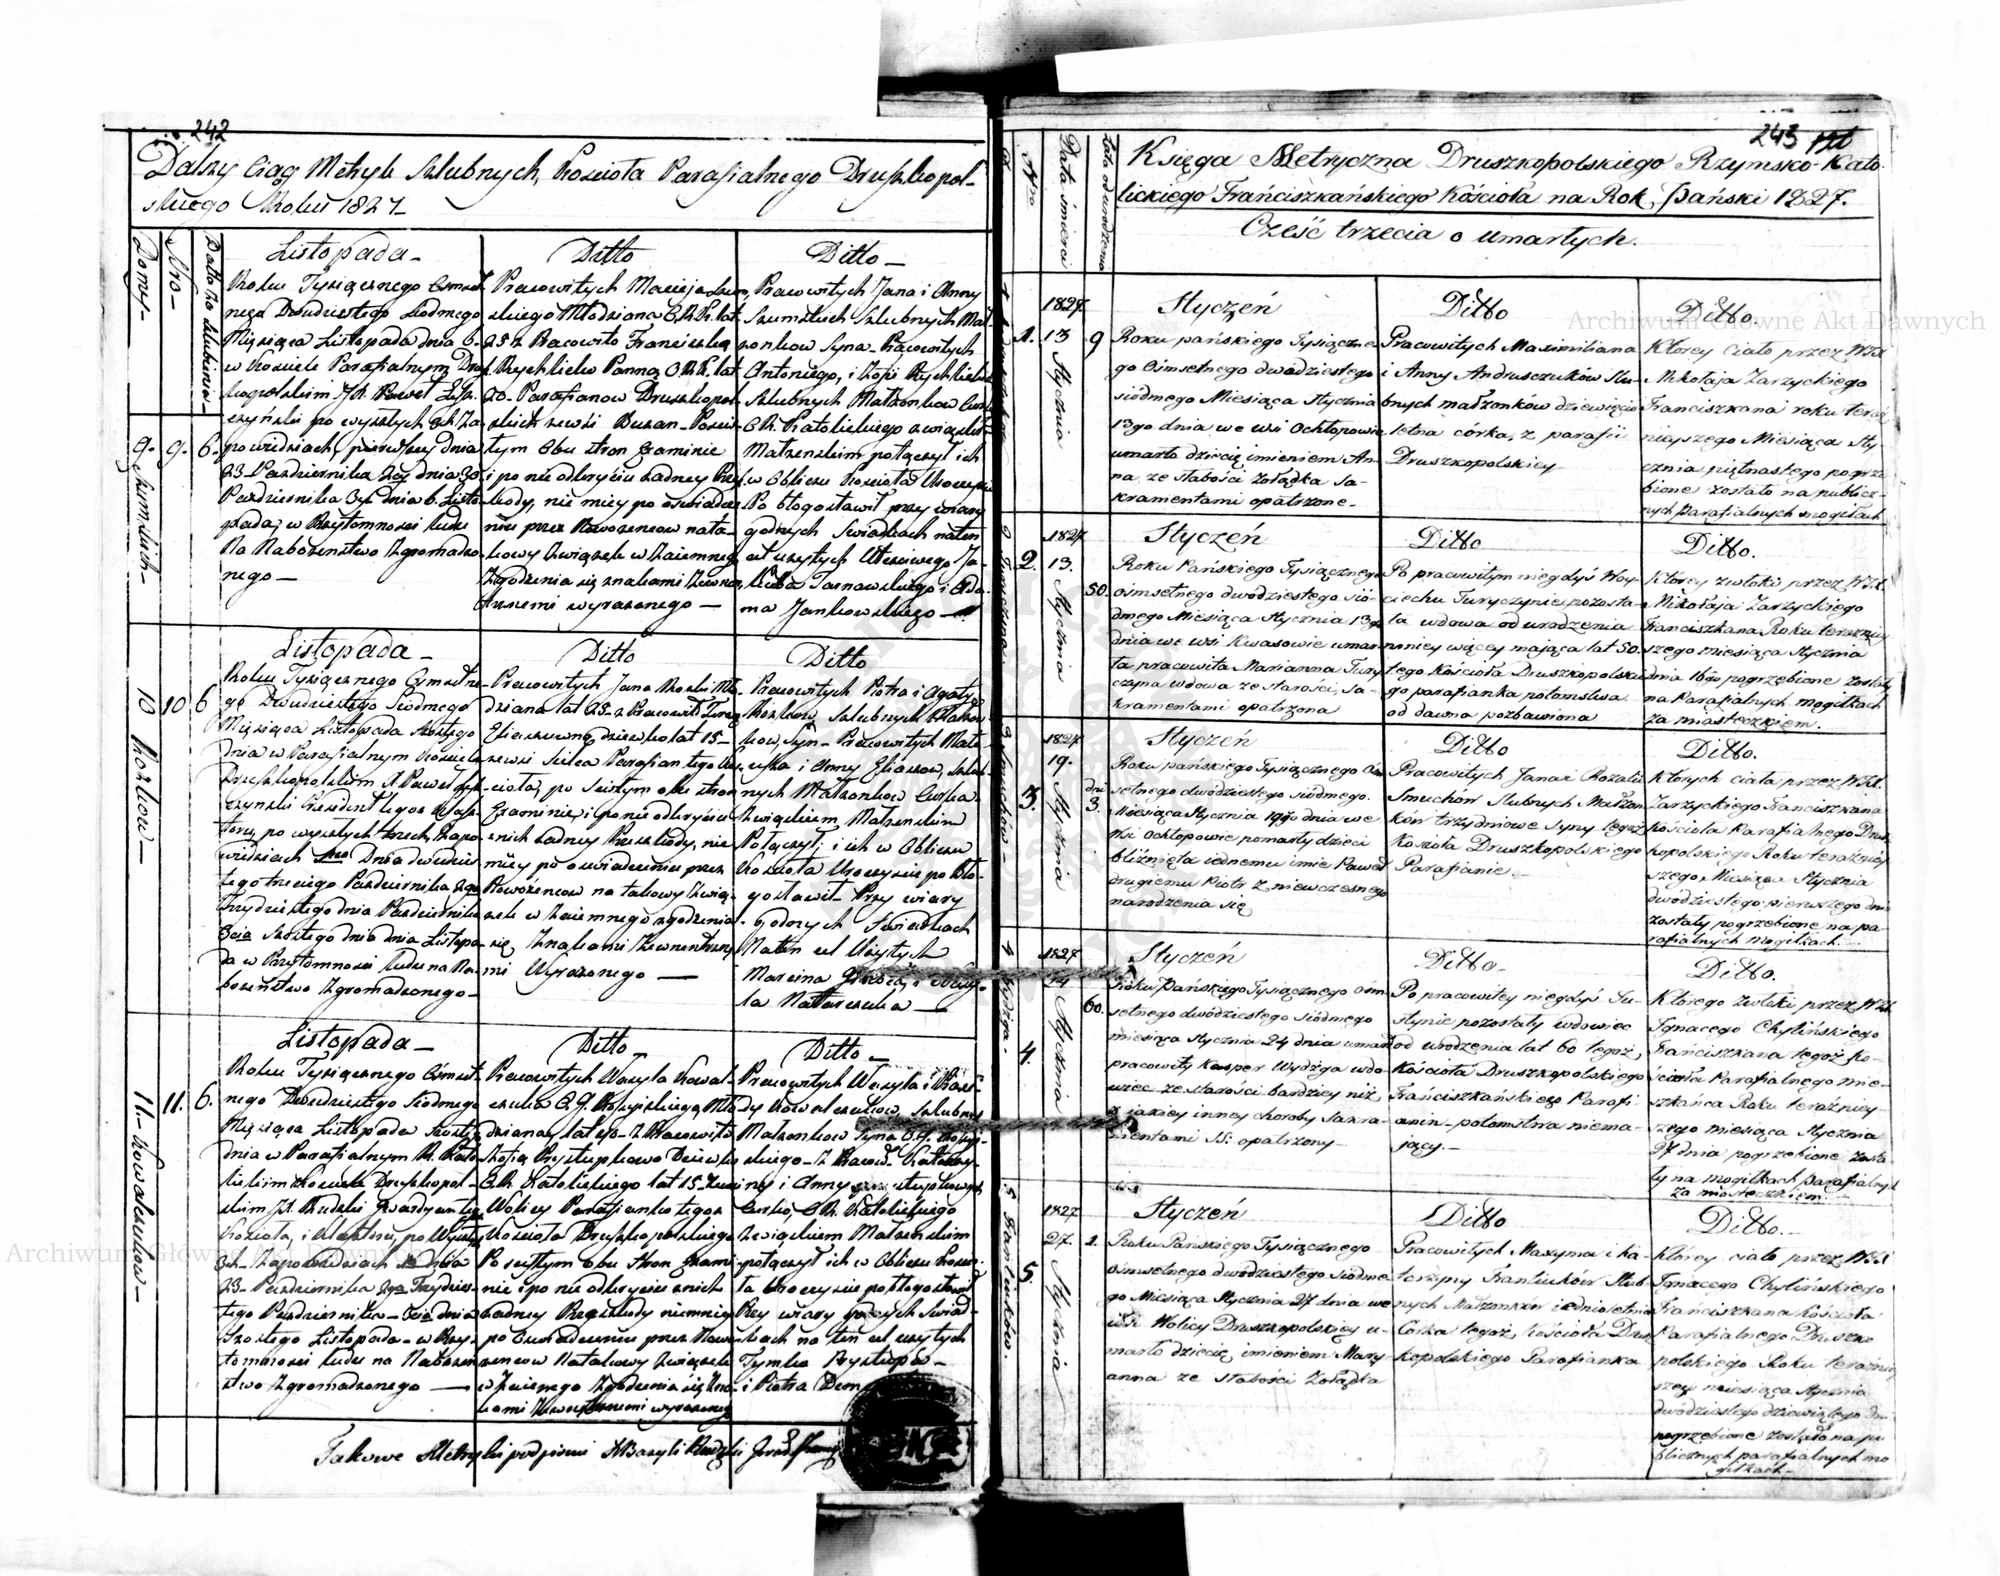 242
Dalszy Ciąg Metryk Szlubnych, Kościoła Parafialnego Druszkopol-
skiego Roku 1827
Domy
Nro
Datta Zaszlubienia
Listopada
Roku Tysiącznego Ośmset-
nego Dwudziestego Siodmego
Miesiąca Listopada dnia 6.
w Kosciele Parafialnym Dru-
po wyszłych 3ch Za-
powiedziach, pierwszey dnia
23 Pazdziernika 2ey dnia 30
Pazdziernika 3y dnia 6. Listo-
pada, w Przytomnosci Ludu
Na Nabozenstwo Zgromadzo-
nego
9. Szumskich
9.
6.
Ditto
Pracowitych Macieja Szum-
skiego Młodziana lat
25 z Pracowito Franciszką
Rychlicko Panną lat
20. Parafianow Druszkopol-
skich zewsi Buzan
tym Obu stron Examinie
i po nie odkryciu zadney Prze-
kody, nie mniey po oswiadcze-
niu przez Nowozencow nata-
kowy Zwiąsek w Zaiemneg
Zgodzenia się znakami Zewnę-
trznemi wyrazonego
Ditto
Pracowitych Jana i Anny
Szumskich Szlubnych Mał-
zonkow Syna Pracowitych
Antoniego, i Zofii Rychlickich
Szlubnych Małzonkow Curkę
Katolickiego zwiąskiem
Małzenskim połączył ich
w Obliczu Koscioła Uroczyscie
Po błogosławił przy wiary
godnych Swiadkach naten
cel uzytych Uczciwego Ja-
kuba Tarnawskiego i Ada-
ma Jankowskiego
10 Kozłkow
10
6
Listopada
Roku Tysiącznego Osmsetne-
go Dwudziestego Siodmego
Miesiąca Listopada Szostego
Dnia w Parafialnym Kosciele
Druszkopolskim
po wyszłych trzech Zapo-
wiedziach Dnia dwudzies-
tego trzeciego Pazdziernika 2ga
Trzydziestego dnia Pazdziernika
3cia Szostego dnia dnia Listopa-
da w Przytomnosci Ludu na Na-
bozenstwo Zgromadzonego
Ditto
Pracowitych Jana Mło-
dziana lat 23
dziewko lat 15
zewsi Parafian tego Kos-
cioła, po Scisłym obu stron
Examinie, i po nie odkryciu
znich zadney Przeszkody, nie
mniey po oswiadczeniu przez
Nowozencow na takowy Zwią-
zek w Zaiemnego zgodzenia
się, Znakami Zewnetrzne-
mi Wyrazonego
Ditto
Pracowitych Piotra i Agaty
Szlubnych Małzon-
kow, Syn Pracowitych Mate-
usza i Anny Eliaszow, Szlub-
nych Małzonkow Curka
Zwiąskiem Małzenskim
Połączył, i ich w Obliczu
Koscioła Uroczyscie po Bło-
gosławił Przy wiary
godnych Swiadkach
Naten cel Uzytych
Marcina
11. Kowalczukow
11.
6.
Listopada
Roku Tysiącznego Osmset-
nego Dwudziestego Siodmego
Miesiąca Listopada Szostego
dnia w Parafialnym
Kosciele Druszkopol-
skim Gwardyan tego
Koscioła, i Klasztoru, po Wyszłych
3ch Zapowiedziach Dnia
23 Pazdziernika 2ga Trzydzies-
tego Pazdziernika 3cia dnia
Szostego Listopada w Przy-
tomnosci Ludu na Nabozen-
stwo Zgromadzonego
Ditto
Pracowitych Wasyla Kowal-
czuka Rossyiskiego Mło-
dziana, lat 20 z Pracowito
Zofią Przystupkowo Dziewko
Katolickiego lat 15
Wolicy Parafianko tegoz
Koscioła Druszkopolskiego
Po scisłym Obu Stron Exami-
nie i po nie odkryciu znich
zadney Przeszkody niemniey
po Oswiadczeniu przez Nowo-
zencow Natakowy Zwiąsek
w Zaiemnego Zgodzenia się Zna-
kami Zewnętrznemi wyrazonego
Ditto
Pracowitych Wasyla i
Kowalczukow, Szlubnych
Małzonkow Syna
Katarzy-
ny i Anny
Curko, Katolickiego
Zwiąskiem Małzenskim
połączył ich w Obliczu Koscio-
ła Uroczyscie pobłogosławił
Przy wiary godnych Swiad-
kach na ten cel uzytych
Tymka
i Piotra
Takowe Metryki podpisuie X Bazyli Rudzki
243
Nro
Data śmierci
Lata od urodzenia
Księga Metryczna Druszkopolskiego Rzymsko-Kato-
lickiego Frańciszkańskiego Kościoła na Rok Pański 1827.
Cześć trzecia o umarłych.
1.
1827
13 Stycznia
9
Styczeń
Roku pańskiego Tysiączne-
go Ośmsetnego dwudziestego
siódmego Miesiąca Stycznia
13go dnia we wsi Ochłopowie
umarło dziecię imieniem An-
na ze słabości żołądka Sa-
kramentami opatrzone.
Ditto
Pracowitych Maximiliana
i Anny Andruszczuków Slu-
bnych małżonków dziewięcio
letna córka, z parafii
Druszkopolskiey
Ditto.
Ktorey ciało przez
Mikołaja Zarzyckiego
Franciszkana roku teraź
nieyszego Miesiąca Sty-
cznia piętnastego pogrze-
bione zostało na publicz-
nych Parafialnych mogiłach
2.
1827
13. Stycznia
50.
Styczeń
Roku Pańskiego Tysiącznego
ośmsetnego dwudziestego sió-
dmego Miesiąca Stycznia 13go
dnia we wsi Kwasowie umar-
ła pracowita Marianna Tury-
czyna wdowa ze starości, Sa-
kramentami opatrzona
Ditto
Po pracowitym niegdyś Woy-
ciechu Turyczynie pozosta-
ła wdowa od urodzenia
mniey więcey mająca lat 50.
tego Kościoła Druszkopolskie-
go parafianka potomstwa
od dawna pozbawiona
Ditto.
Którey zwłoki przez
Mikołaja Zarzyckiego
Franciszkana Roku teraźniey-
szego miesiąca Stycznia
dnia 16go pogrzebione zostały
na Parafialnych mogiłkach
za miasteczkiem.
3.
1827
19. Stycznia
dni
3.
Styczeń
Roku pańskiego Tysiącznego Ośm-
setnego dwudziestego siódmego.
Miesiąca Stycznia 19go dnia we
Wsi Ochłopowie pomarły dzieci
bliźnięta iednemu imie Paweł
drugiemu Piotr z niewczesnego
narodzenia się
Ditto
Pracowitych Jana i Rozalii
Smuchów Slubnych Małżon-
ków trzydniowe syny tegoż
Kościoła Druszkopolskiego
Parafianie.
Ditto.
Ktorych ciała przez
Zarzyckiego Franciszkana
Kościoła Parafialnego Drusz-
kopolskiego Roku teraźniey-
szego, Miesiąca Stycznia
dwudziestego pierwszego dnia
zostały pogrzebione na pa-
rafialnych mogiłkach.
4. Wydźga.
4.
1827
24 Stycznia
60.
Styczeń
Roku Pańskiego Tysiącznego ośm-
setnego dwudziestego siódmego
miesiąca Stycznia 24 dnia umarł
pracowity Kasper Wydźga wdo-
wiec ze starości bardziey niż
z jakiey inney choroby Sakra-
mentami SS: opatrzony
Ditto.
Po pracowitey niegdyś Ju-
stynie pozostały wdowiec
od urodzenia lat 60 tegoż
Kościoła Druszkopolskiego
Frańciszkańskiego Parafi-
anin potomstwa niema-
jący.
Ditto.
Którego zwłoki przez
Ignacego Chylińskiego
Frańciszkana tegoż Ko-
ścioła Parafialnego mie-
szkańca Roku teraźniey-
szego miesiąca Stycznia
27 dnia pogrzebione zosta-
ły na mogiłkach parafialnych
za miasteczkiem.
5. Frantiuków.
5.
1827
27. Stycznia
1.
Styczeń
Roku Pańskiego Tysiącznego
ośmsetnego dwudziestego siódme-
go Miesiąca Stycznia 27 dnia we
wsi Wolicy Druszkopolskiey u-
marło dziecię imieniem Mary-
anna ze słabości żołądka
Ditto
Pracowitych Maxyma i Ka-
terzyny Frantiuków Slub-
nych Małżonków iednoletnia
Córka tegoż Kościoła Drusz-
kopolskiego Parafianka
Ditto.
Którey ciało przez
Ignacego Chylińskiego
Frańciszkana Kościoła
Parafialnego Druszko
polskiego Roku teraźniey
szego miesiąca Stycznia
dwudziestego dziewiątego dnia
pogrzebione zostało na pu-
blicznych parafialnych mo-
giłkach
Archiwum Główne Akt Dawnych
Archiwum Główne Akt Dawnych